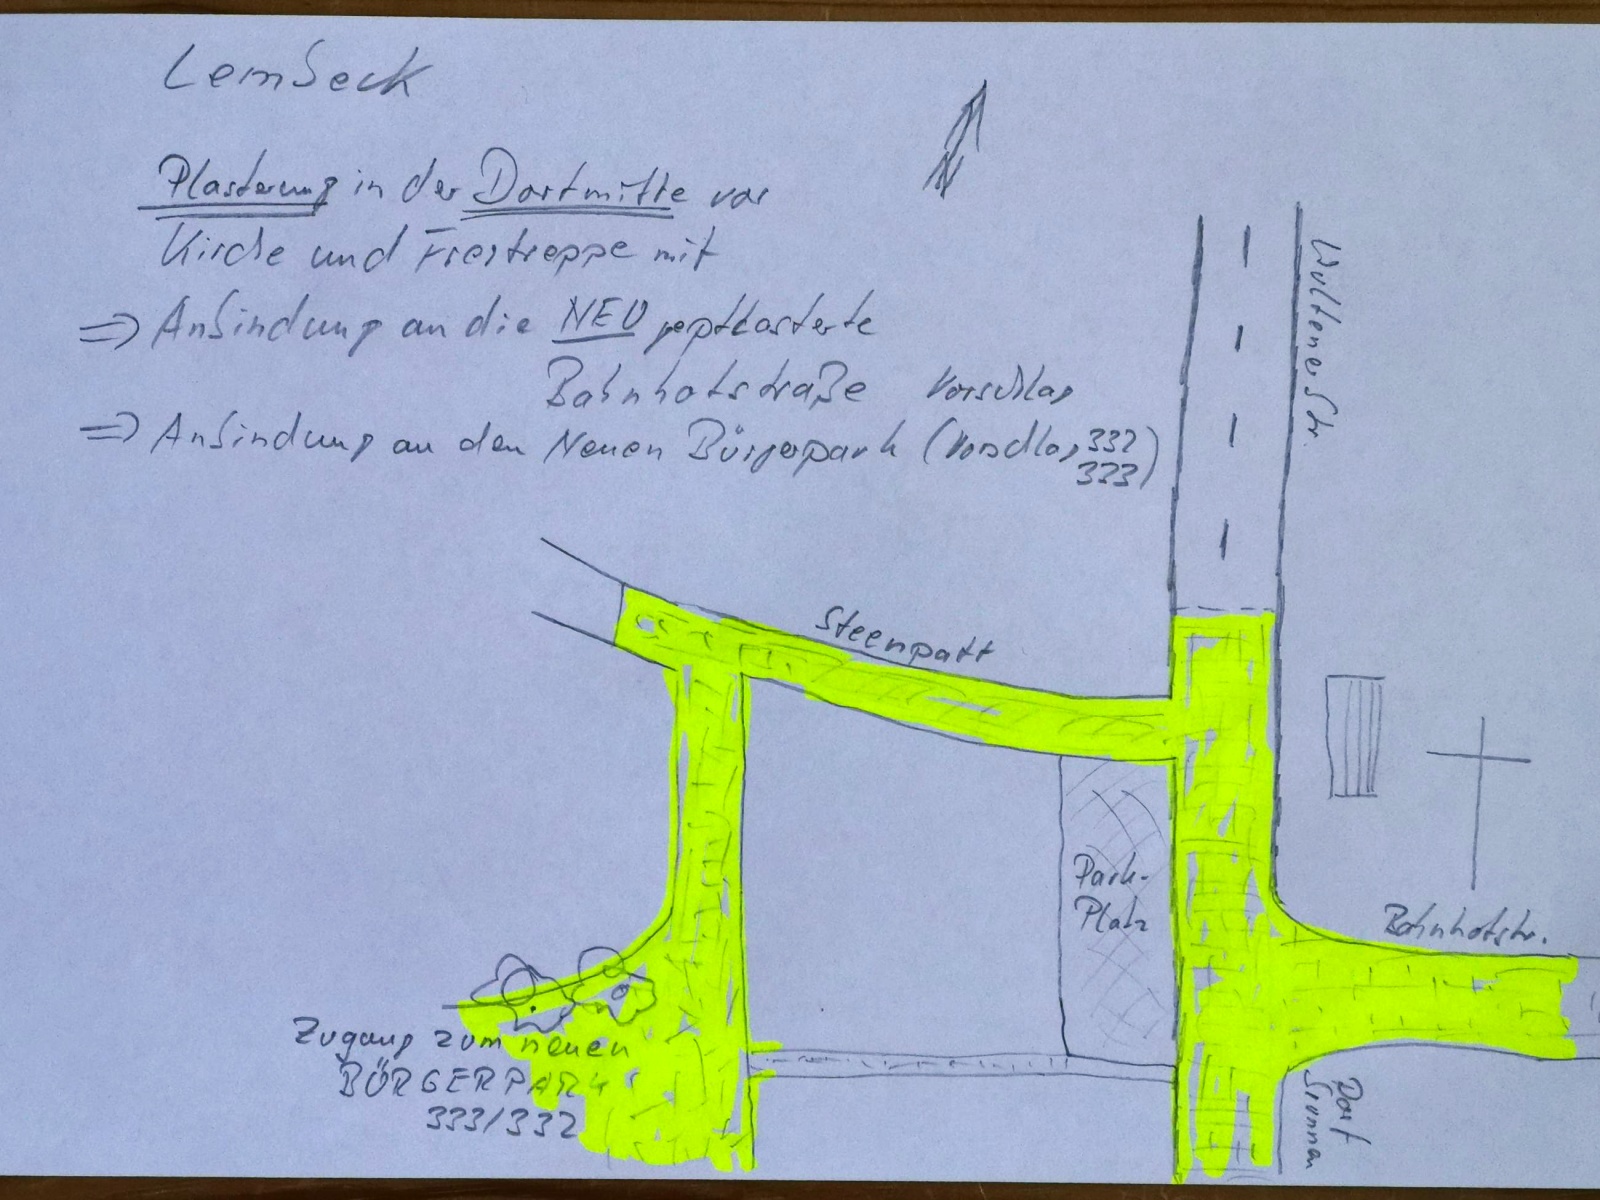 Lembeck
N
Pflasterung in der Dorfmitte vor
Kirche und Freitreppe mit
⇒ Anbindung an die NEU gepflasterte
Bahnhofstraße Vorschlag
⇒ Anbindung an den Neuen Bürgerpark (Vorschlag 332
333)
Wulfener Str.
Steenpatt
Park-
Platz
Bahnhofstr.
Zugang zum neuen
BÜRGERPARK
333/332
Dorf
brunnen